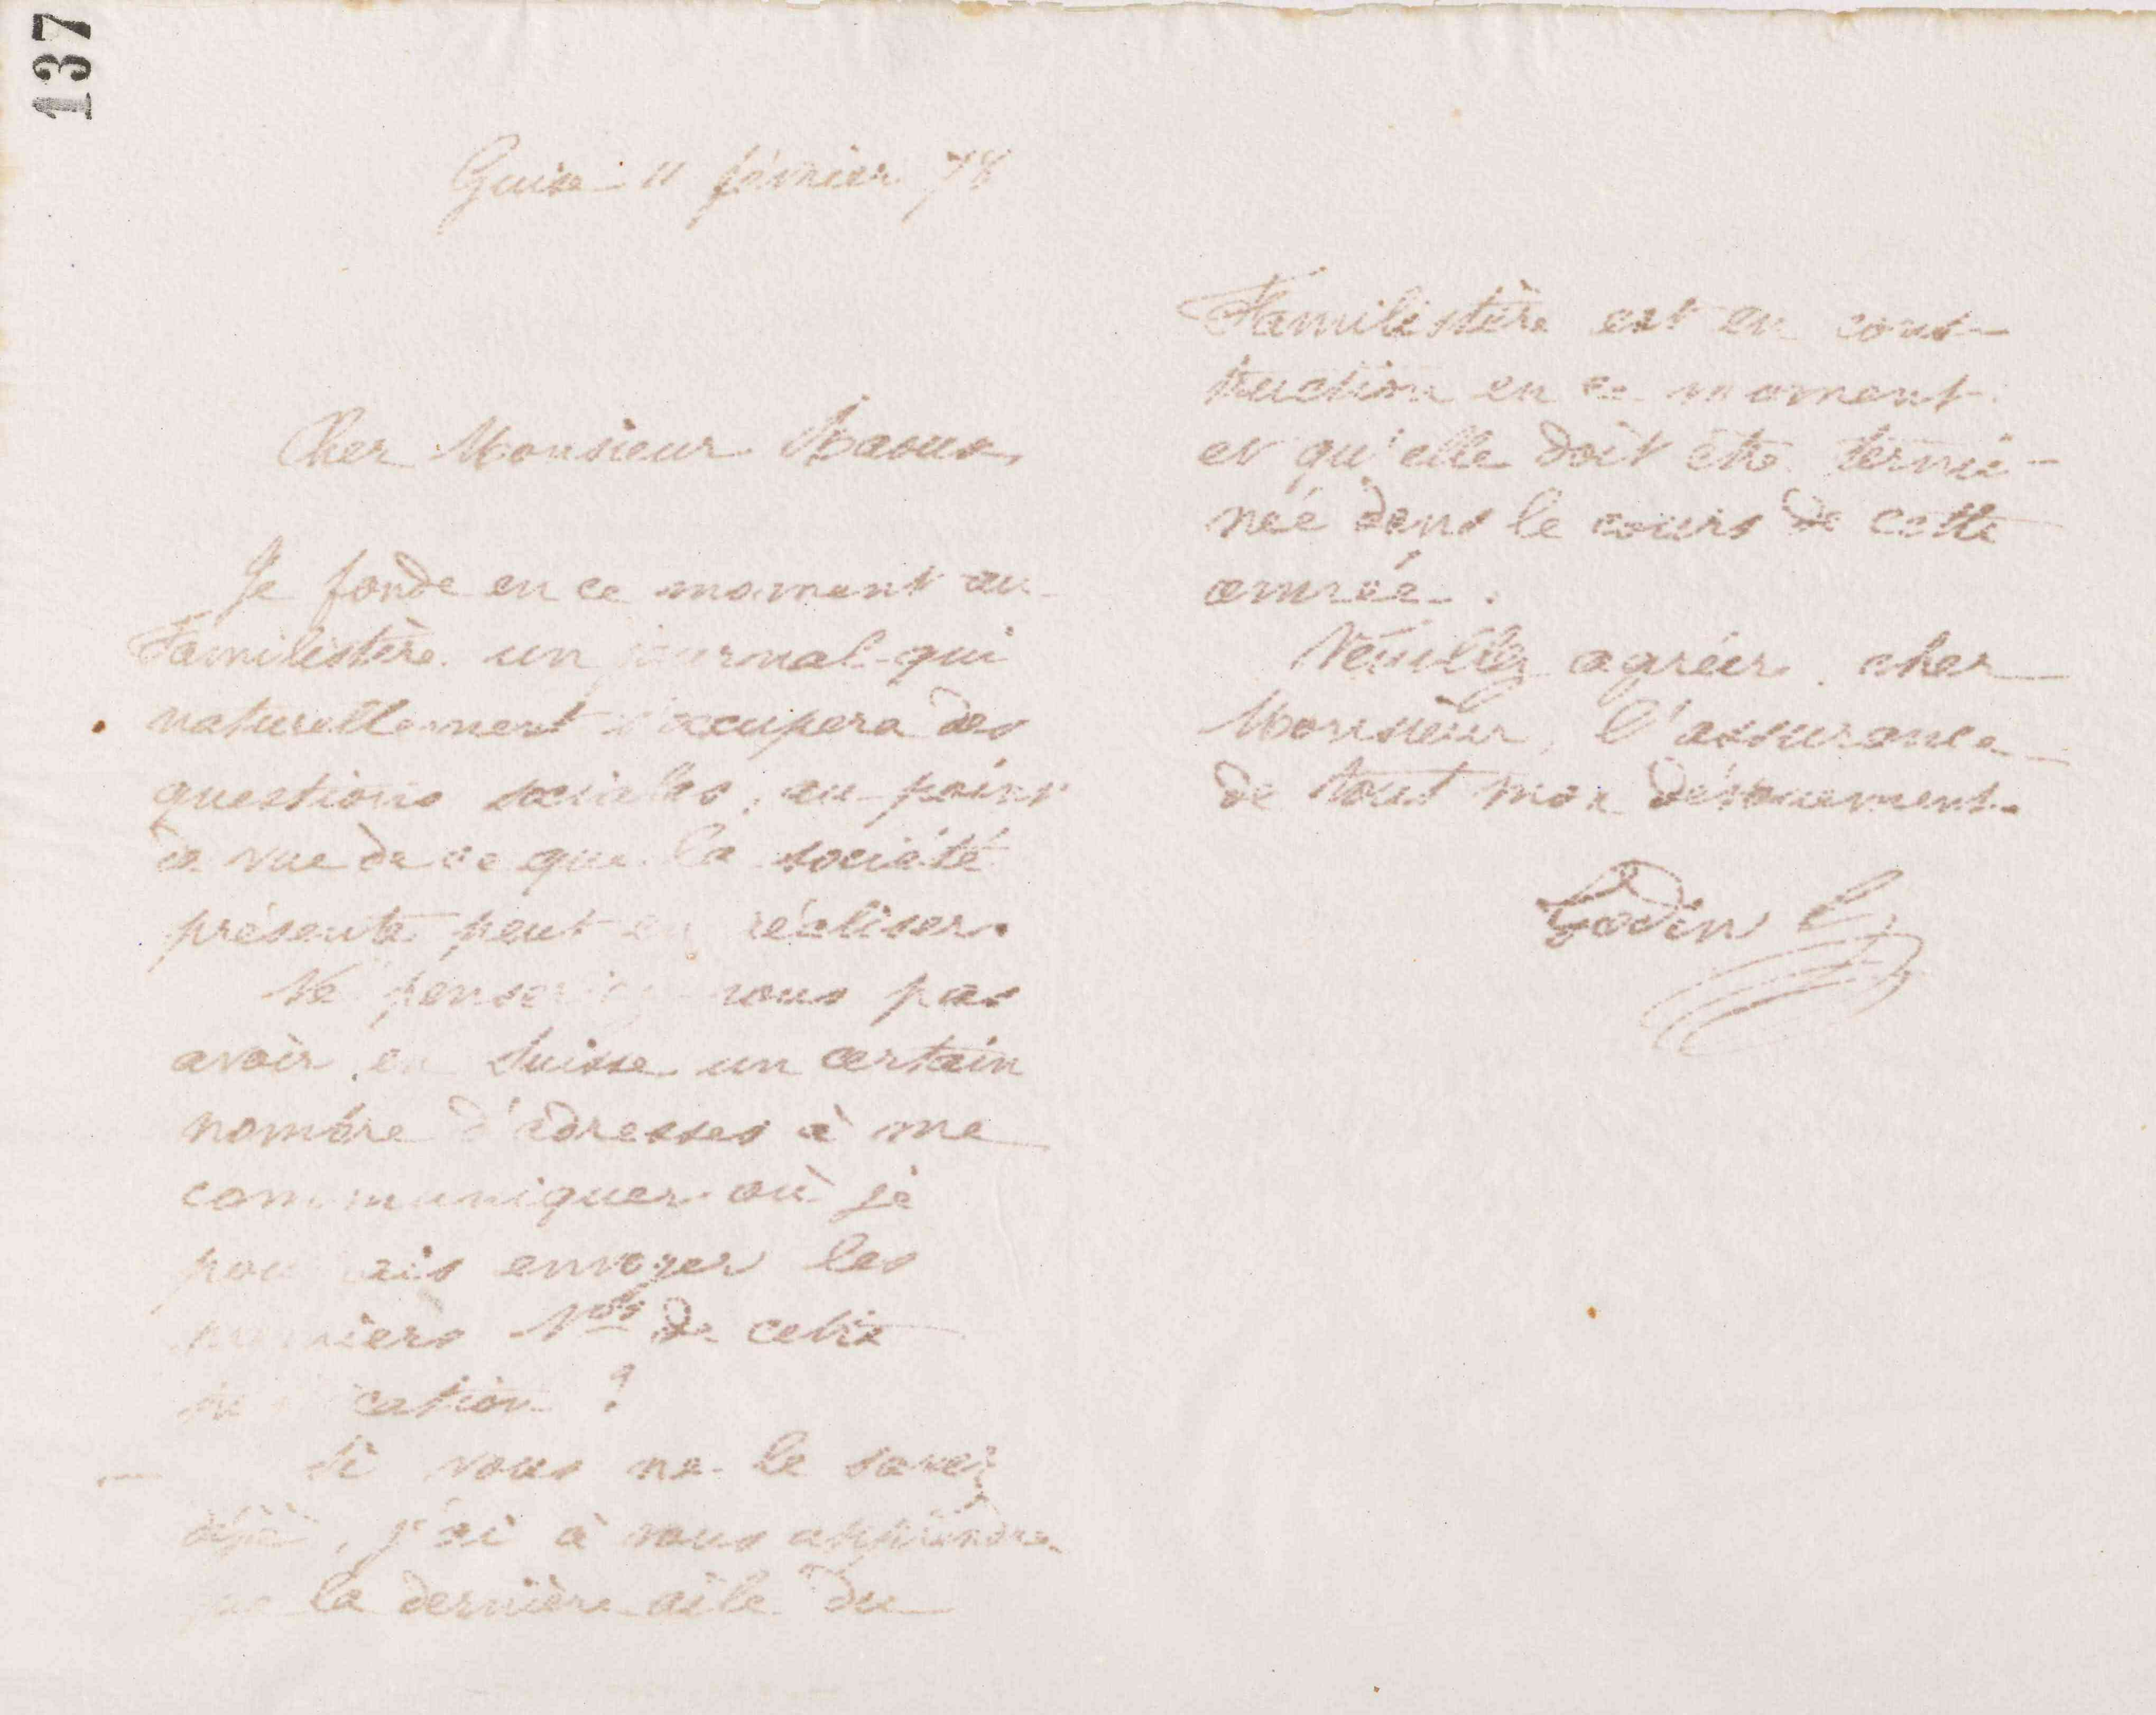 137
Guise 11 février 78
Cher Monsieur
Je fonde en ce moment au
Familistère un journal qui
naturellement s'occupera des
questions sociales, au point
de vue de ce que la société
présente peut en réaliser.
Ne penseriez-vous pas
avoir en Suisse un certain
nombre d'adresses à me
communiquer où je
pourrais envoyer les
premiers Nos de cette
publication ?
Si vous ne le savez
déjà, j'ai à vous apprendre
que la dernière aile du
Familistère est en cons-
truction en ce moment
et qu'elle doit être termi-
née dans le cours de cette
année.
Veuillez agréer, cher
Monsieur, l'assurance
de tout mon dévouement.
Godin